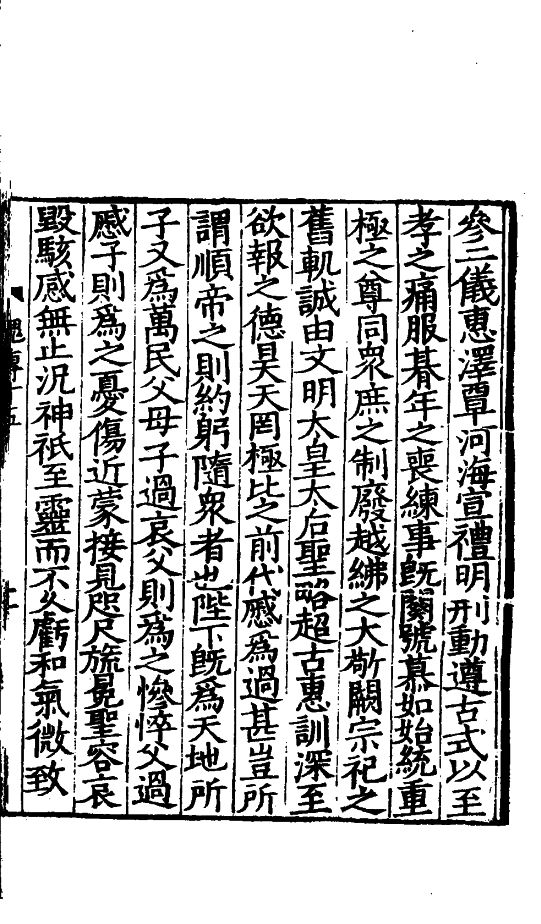 參二儀惠澤覃河海宣禮明刑動遵古式以至
孝之痛服朞年之喪練事旣闋號慕如始統重
極之尊同衆庶之制廢越紼之大敬闕宗祀之
舊軌誠由文明太皇太后聖略超古惠訓深至
欲報之德昊天罔極比之前代慼爲過甚豈所
謂順帝之則約躬隨衆者也陛下旣爲天地所
子又爲萬民父母子過哀父則爲之慘悴父過
慼子則爲之憂傷近蒙接見咫尺旒冕聖容哀
毀駭感無止況神祇至靈而不久虧和氣微致
魏傳十五